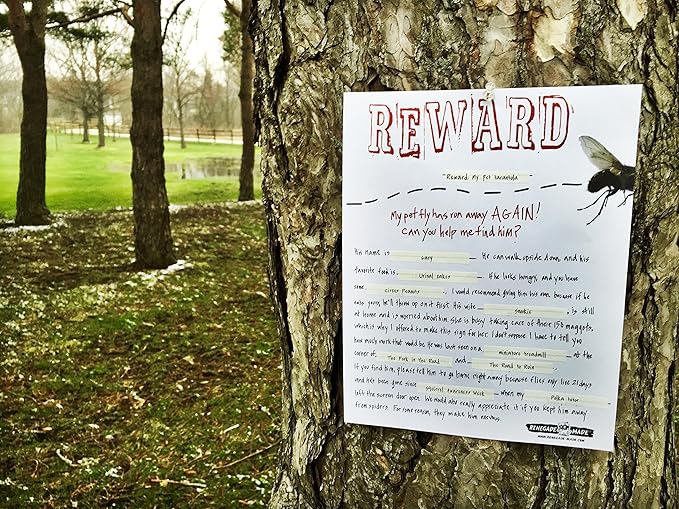 REWARD
"Reward: My pet tarantula
My pet fly has run away AGAIN!
Can you help me find him?
His name is Gary. He can walk upside down, and his
favorite food is Urinal cakes. If he looks hungry, and you have
some Circus Peanuts, I would recommend giving him his own, because if he
eats yours, he'll throw up on it first. His wife Smokie, is still
at home and is worried about him. She is busy taking care of their 150 maggots,
which is why I offered to make this sign for her. I don't suppose I have to tell you
how much work that would be. He was last seen on a miniature treadmill at the
corner of The Fork in the Road and The Road to Ruin.
If you find him, please tell him to go home right away because flies only live 21 days
and he's been gone since Squirrel Awareness Week when my Polka tutor
left the screen door open. We would also really appreciate it if you kept him away
from spiders. For some reason, they make him nervous.
RENEGADE MADE
WWW.RENEGADE-MADE.COM